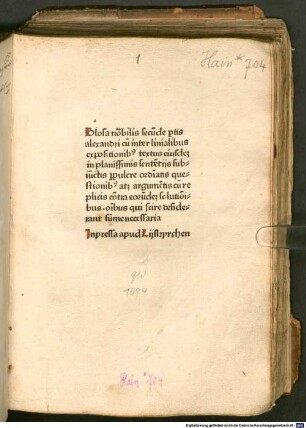 1
Hain * 704
Glosa nõbilis secũde ꝑtis
alexandri cũ interlinialibus
expositionibꝰ textus eiusdeʒ
in planissimis sententijs sub⸗
iũctis ꝑpulcre ordinatis que⸗
stionibꝰ atqʒ argumẽtis cũ re
plicis cõtra eorũdeʒ solutiõni⸗
bus. oĩbus qui scire deside⸗
rant sũme necessaria
Inpressa apud Lijstzyrchen
GW
1094
Hain * 704
Digitalisierung gefördert durch die Deutsche Forschungsgemeinschaft